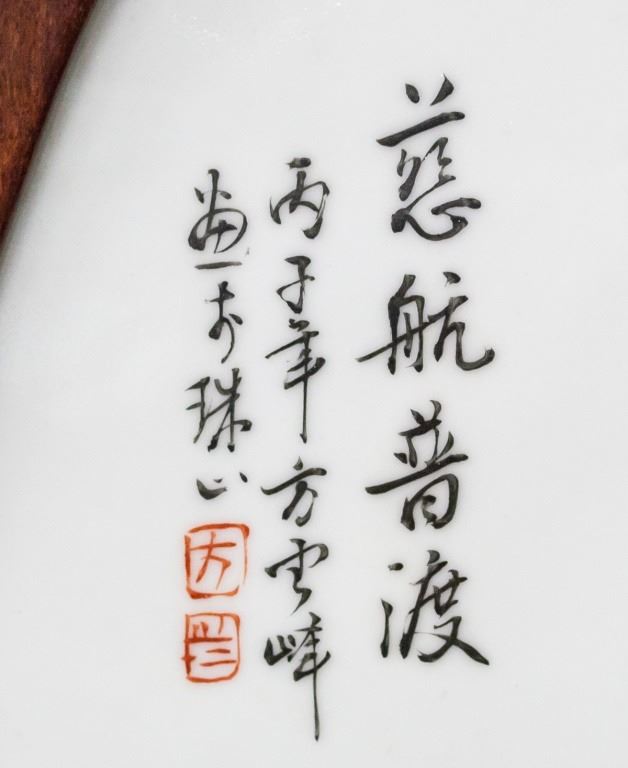 慈航普渡
丙子年方云峰
画于珠山
方